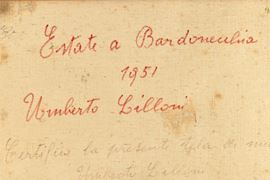 Estate a Bardonecchia
1951
Umberto Lilloni
Certifico la presente tela di mia
Umberto Lilloni